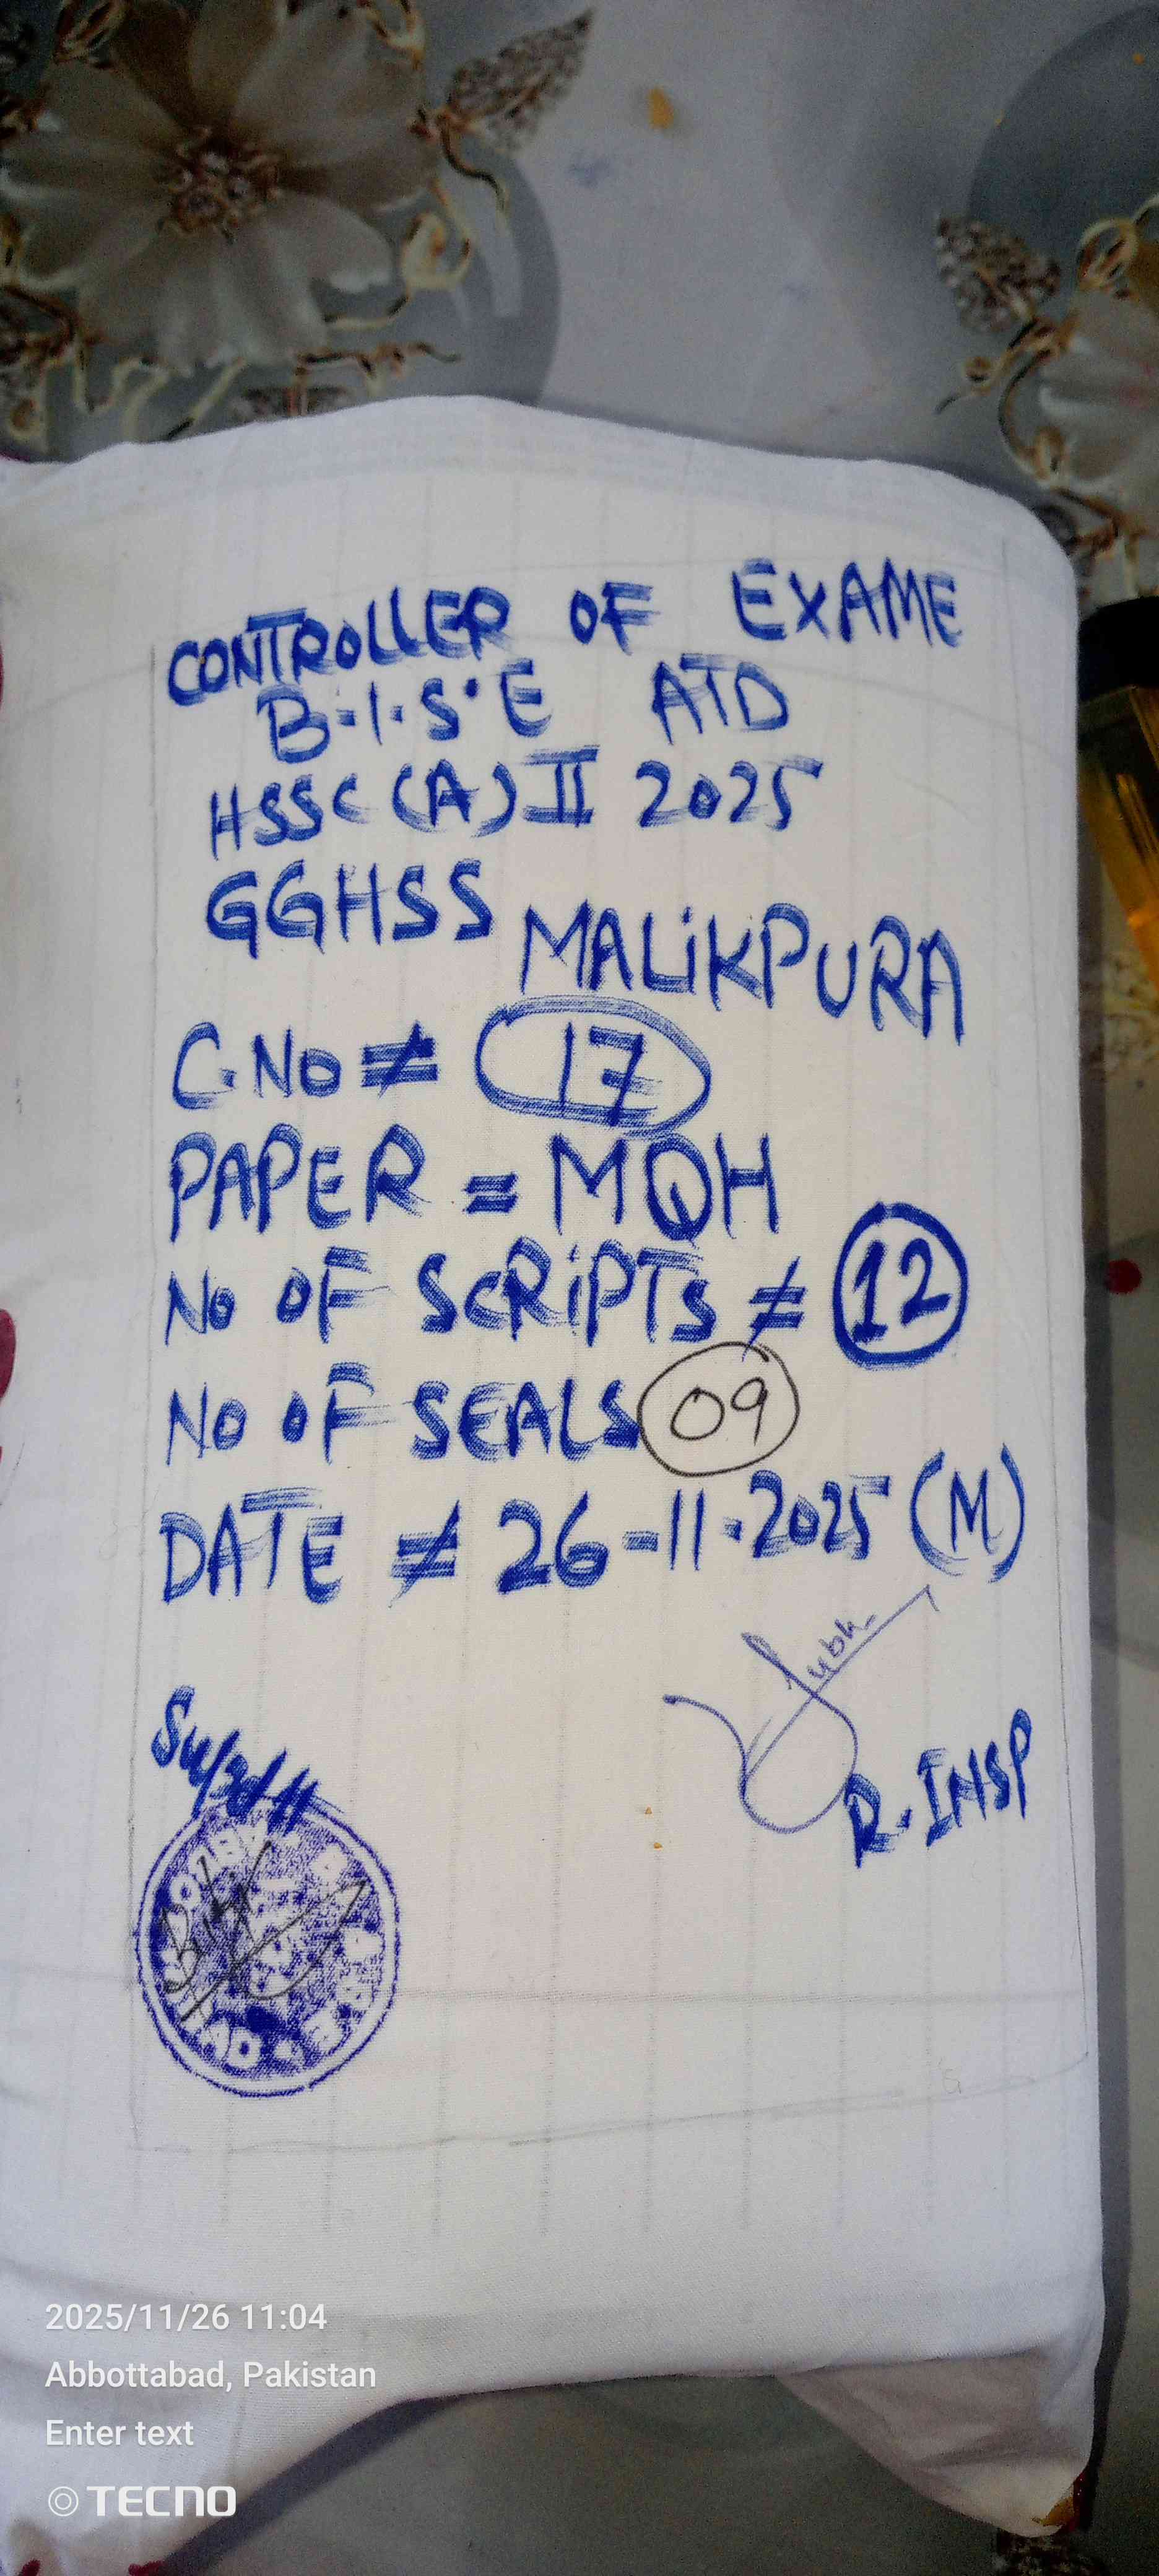 CONTROLLER OF EXAME
B.I.S.E ATD
HSSC (A) II 2025
GGHSS MALiKPURA
C.No ≠ 17
PAPER = MQH
No OF SCRiPTs ≠ 12
No OF SEALS 09
DATE ≠ 26-11-2025 (M)
R. INSP
2025/11/26 11:04
Abbottabad, Pakistan
Enter text
TECNO